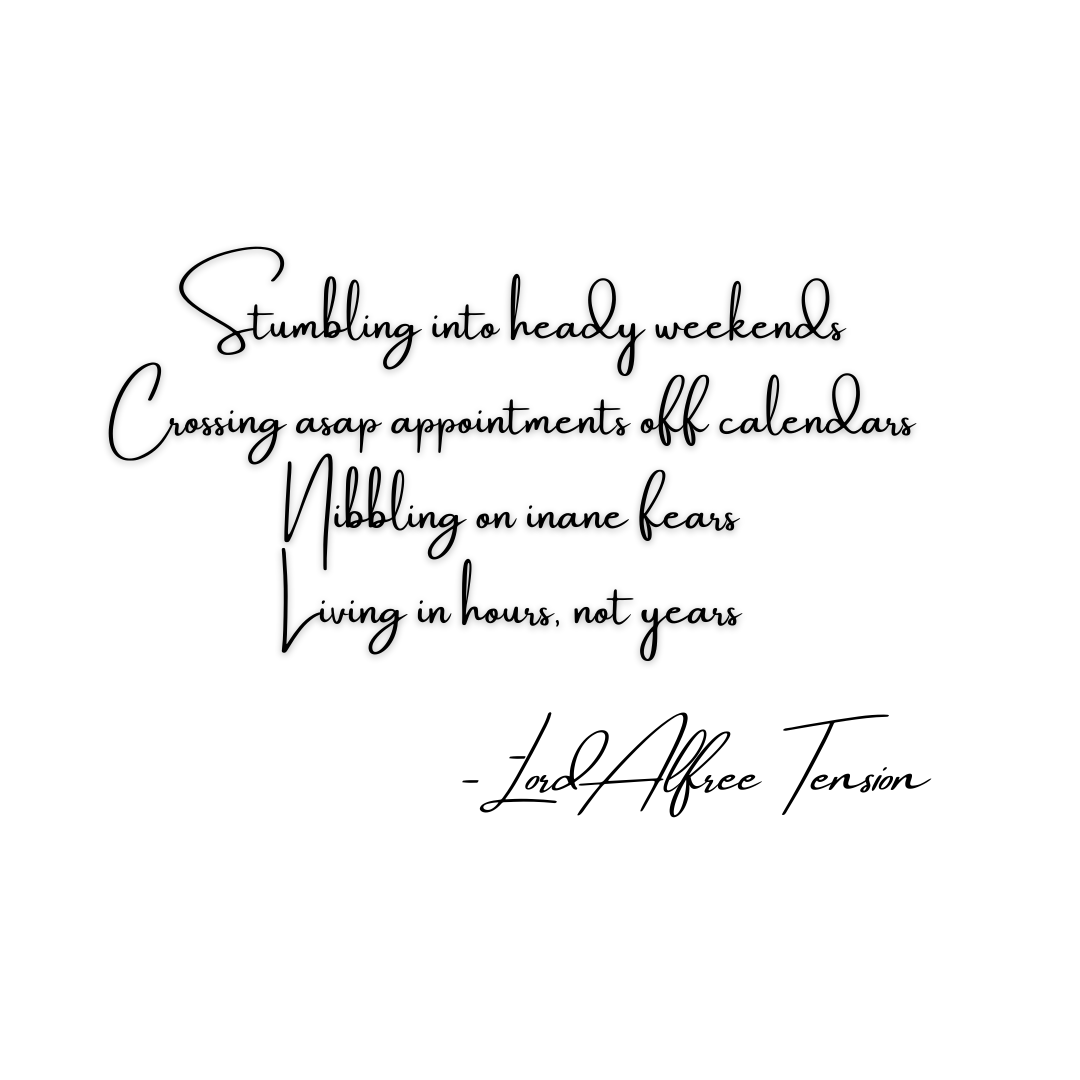 Stumbling into heady weekends
Crossing asap appointments off calendars
Nibbling on inane fears
Living in hours, not years
- Lord Alfree Tension